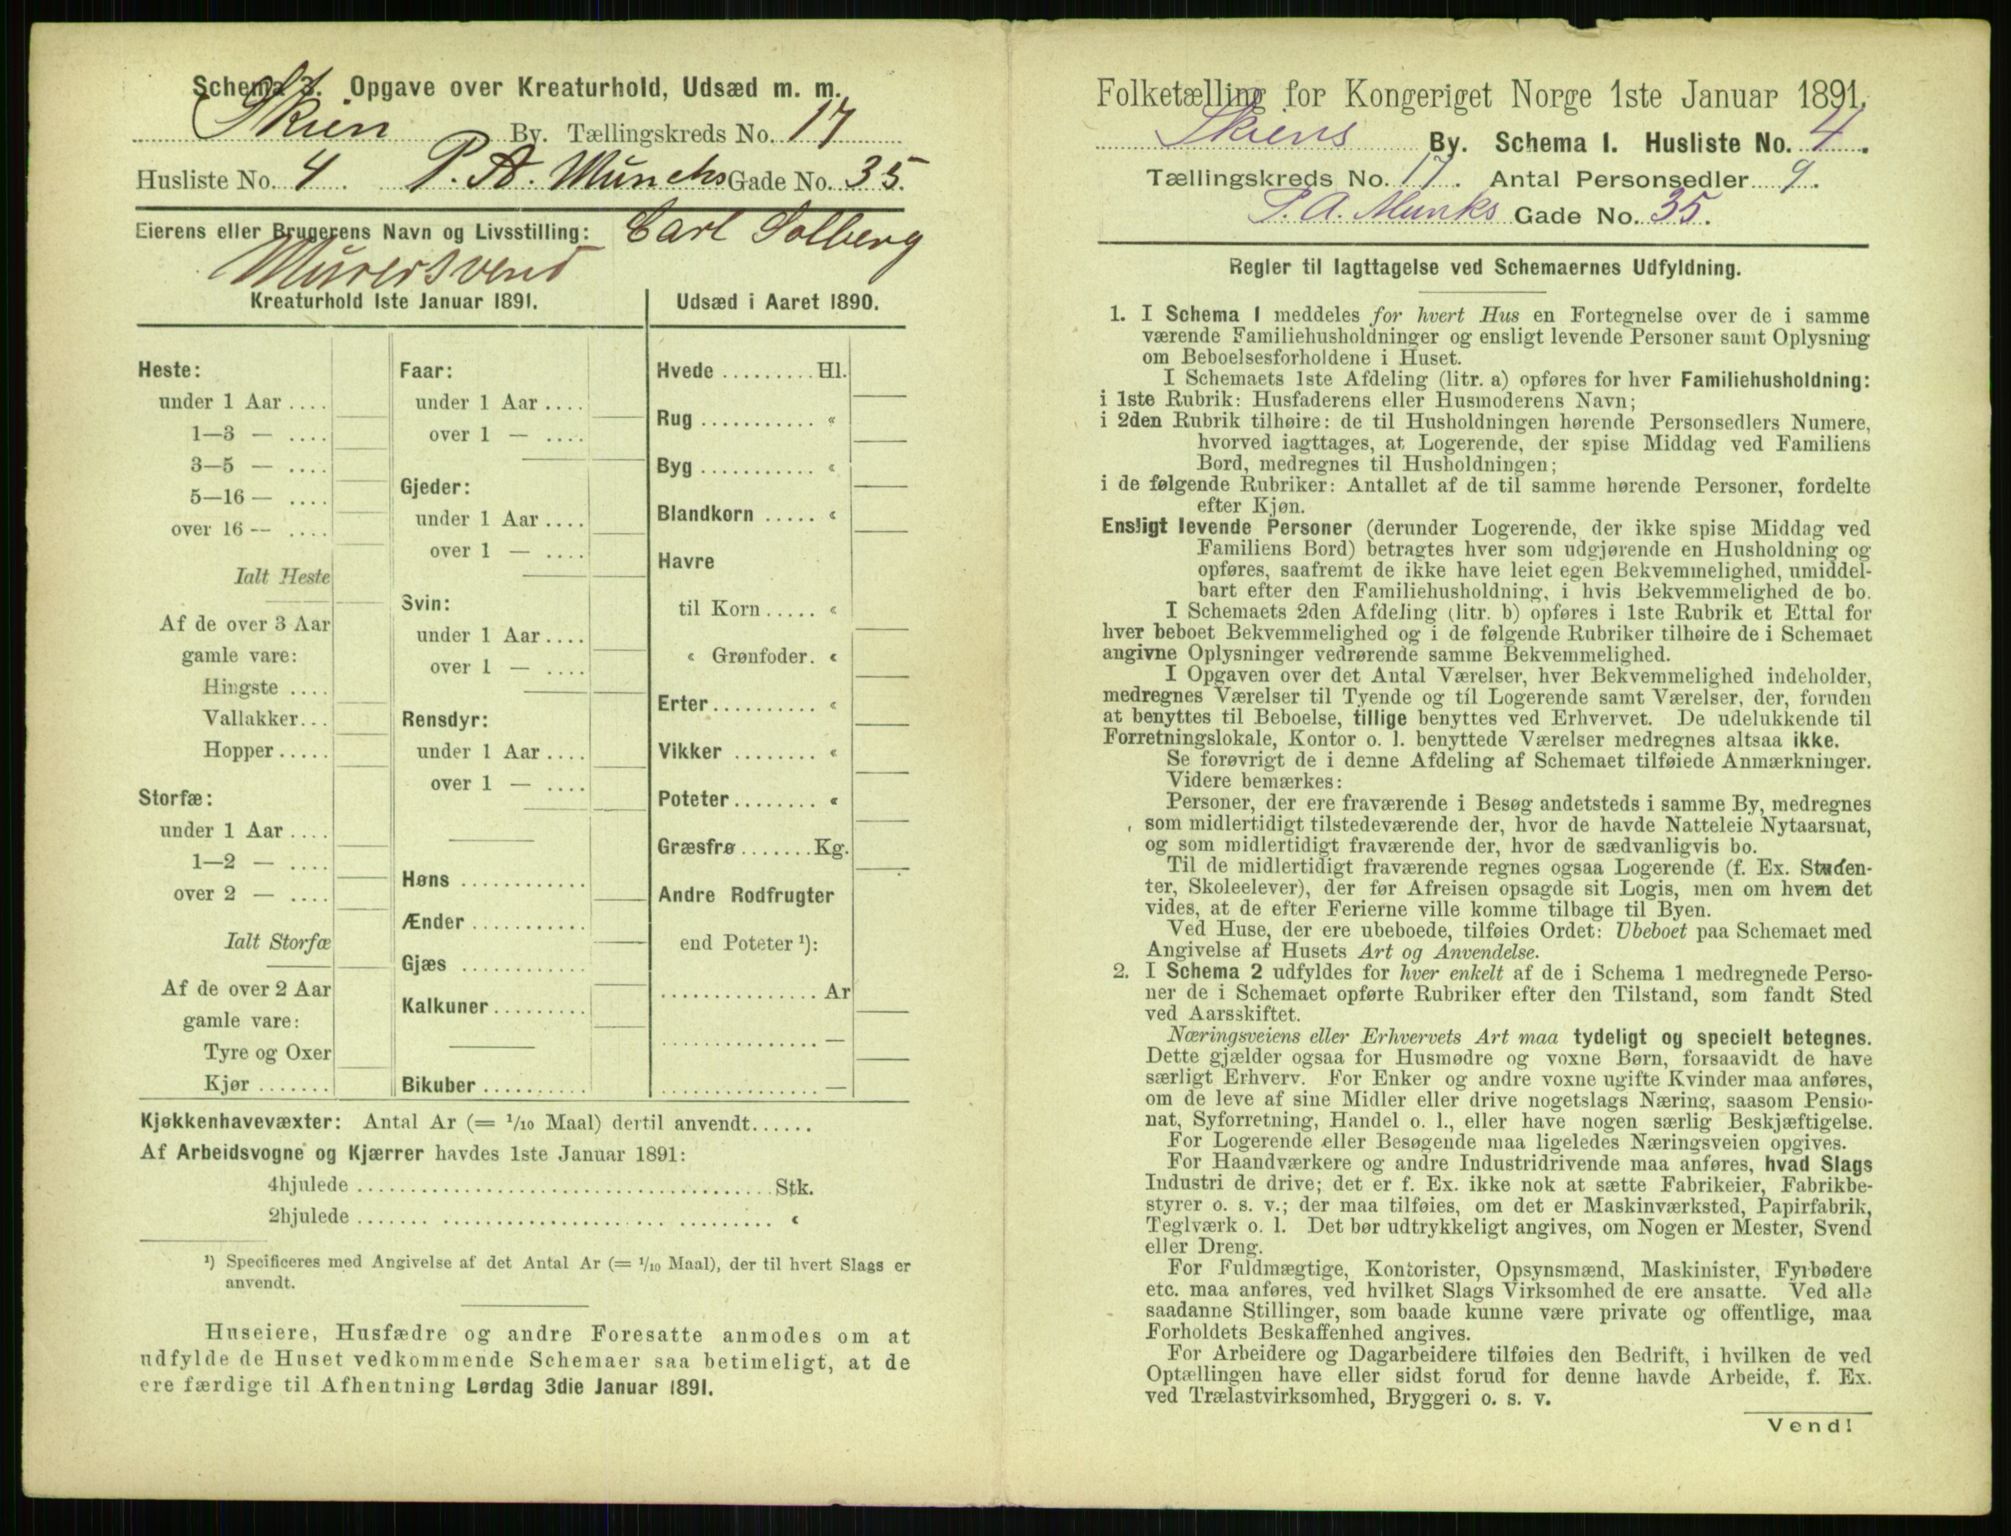 Schema 3. Opgave over Kreaturhold, Udsæd m. m.
Skien By. Tællingskreds No. 17
Husliste No. 4. P. A. Munchs Gade No. 35.
Eierens eller Brugerens Navn og Livsstilling: Carl Solberg
Murersvend
Kreaturhold 1ste Januar 1891.
Heste:
under 1 Aar ....
1—3 — ....
3—5 — ....
5—16 — ....
over 16 — ....
Ialt Heste
Af de over 3 Aar
gamle vare:
Hingste ....
Vallakker...
Hopper .....
Storfæ:
under 1 Aar ....
1—2 — ....
over 2 — ....
Ialt Storfæ
Af de over 2 Aar
gamle vare:
Tyre og Oxer
Kjør .......
Faar:
under 1 Aar ....
over 1 — ....
Gjeder:
under 1 Aar ....
over 1 — ....
Svin:
under 1 Aar ....
over 1 — ....
Rensdyr:
under 1 Aar ....
over 1 — ....
Høns ............
Ænder ...........
Gjæs ............
Kalkuner.........
Bikuber ..........
Udsæd i Aaret 1890.
Hvede ......... Hl.
Rug ........... «
Byg ........... «
Blandkorn ..... «
Havre
til Korn ..... «
« Grønfoder. «
Erter.......... «
Vikker ........ «
Poteter........ «
Græsfrø ....... Kg.
Andre Rodfrugter
end Poteter ¹):
............... Ar
............... —
............... —
Kjøkkenhavevæxter: Antal Ar (= 1/10 Maal) dertil anvendt......
Af Arbeidsvogne og Kjærrer havdes 1ste Januar 1891:
4hjulede ....................................... Stk.
2hjulede ....................................... «
¹) Specificeres med Angivelse af det Antal Ar (= 1/10 Maal), der til hvert Slags er
anvendt.
Huseiere, Husfædre og andre Foresatte anmodes om at
udfylde de Huset vedkommende Schemaer saa betimeligt, at de
ere færdige til Afhentning Lørdag 3die Januar 1891.
Folketælling for Kongeriget Norge 1ste Januar 1891.
Skiens By. Schema I. Husliste No. 4.
Tællingskreds No. 17. Antal Personsedler 9.
P. A. Munks Gade No. 35.
Regler til Iagttagelse ved Schemaernes Udfyldning.
1. I Schema 1 meddeles for hvert Hus en Fortegnelse over de i samme
værende Familiehusholdninger og ensligt levende Personer samt Oplysning
om Beboelsesforholdene i Huset.
I Schemaets 1ste Afdeling (litr. a) opføres for hver Familiehusholdning:
i 1ste Rubrik: Husfaderens eller Husmoderens Navn;
i 2den Rubrik tilhøire: de til Husholdningen hørende Personsedlers Numere,
hvorved iagttages, at Logerende, der spise Middag ved Familiens
Bord, medregnes til Husholdningen;
i de følgende Rubriker: Antallet af de til samme hørende Personer, fordelte
efter Kjøn.
Ensligt levende Personer (derunder Logerende, der ikke spise Middag ved
Familiens Bord) betragtes hver som udgjørende en Husholdning og
opføres, saafremt de ikke have leiet egen Bekvemmelighed, umiddel-
bart efter den Familiehusholdning, i hvis Bekvemmelighed de bo.
I Schemaets 2den Afdeling (litr. b) opføres i 1ste Rubrik et Ettal for
hver beboet Bekvemmelighed og i de følgende Rubriker tilhøire de i Schemaet
angivne Oplysninger vedrørende samme Bekvemmelighed.
I Opgaven over det Antal Værelser, hver Bekvemmelighed indeholder,
medregnes Værelser til Tyende og til Logerende samt Værelser, der, foruden
at benyttes til Beboelse, tillige benyttes ved Erhvervet. De udelukkende til
Forretningslokale, Kontor o. l. benyttede Værelser medregnes altsaa ikke.
Se forøvrigt de i denne Afdeling af Schemaet tilføiede Anmærkninger.
Videre bemærkes:
Personer, der ere fraværende i Besøg andetsteds i samme By, medregnes
som midlertidigt tilstedeværende der, hvor de havde Natteleie Nytaarsnat,
og som midlertidigt fraværende der, hvor de sædvanligvis bo.
Til de midlertidigt fraværende regnes ogsaa Logerende (f. Ex. Studen-
ter, Skoleelever), der før Afreisen opsagde sit Logis, men om hvem det
vides, at de efter Ferierne ville komme tilbage til Byen.
Ved Huse, der ere ubeboede, tilføies Ordet: Ubeboet paa Schemaet med
Angivelse af Husets Art og Anvendelse.
2. I Schema 2 udfyldes for hver enkelt af de i Schema 1 medregnede Perso-
ner de i Schemaet opførte Rubriker efter den Tilstand, som fandt Sted
ved Aarsskiftet.
Næringsveiens eller Erhvervets Art maa tydeligt og specielt betegnes.
Dette gjælder ogsaa for Husmødre og voxne Børn, forsaavidt de have
særligt Erhverv. For Enker og andre voxne ugifte Kvinder maa anføres,
om de leve af sine Midler eller drive nogetslags Næring, saasom Pensio-
nat, Syforretning, Handel o. l., eller have nogen særlig Beskjæftigelse.
For Logerende eller Besøgende maa ligeledes Næringsveien opgives.
For Haandværkere og andre Industridrivende maa anføres, hvad Slags
Industri de drive; det er f. Ex. ikke nok at sætte Fabrikeier, Fabrikbe-
styrer o. s. v.; der maa tilføies, om det er Maskinværksted, Papirfabrik,
Teglværk o. l. Det bør udtrykkeligt angives, om Nogen er Mester, Svend
eller Dreng.
For Fuldmægtige, Kontorister, Opsynsmænd, Maskinister, Fyrbødere
etc. maa anføres, ved hvilket Slags Virksomhed de ere ansatte. Ved alle
saadanne Stillinger, som baade kunne være private og offentlige, maa
Forholdets Beskaffenhed angives.
For Arbeidere og Dagarbeidere tilføies den Bedrift, i hvilken de ved
Optællingen have eller sidst forud for denne havde Arbeide, f. Ex.
ved Trælastvirksomhed, Bryggeri o. s. v.
Vend!